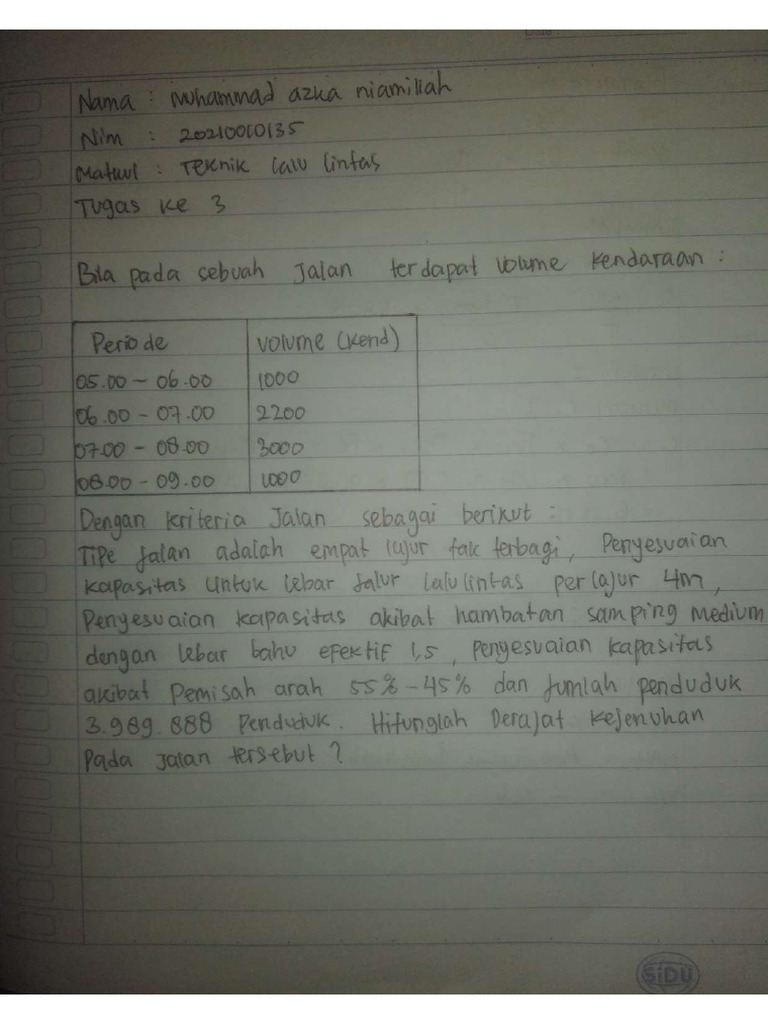 Nama : Muhammad azka niamillah
Nim : 20210010135
Matkul : Teknik lalu lintas
Tugas ke 3
Bila pada sebuah Jalan terdapat volume kendaraan :
Periode volume (kend)
05.00 - 06.00 1000
06.00 - 07.00 2200
07.00 - 08.00 3000
08.00 - 09.00 1000
Dengan kriteria Jalan sebagai berikut :
Tipe Jalan adalah empat lajur tak terbagi, Penyesuaian
kapasitas untuk lebar Jalur lalulintas per lajur 4m,
Penyesuaian kapasitas akibat hambatan samping medium
dengan lebar bahu efektif 1,5, penyesuaian kapasitas
akibat pemisah arah 55% - 45% dan Jumlah penduduk
3.989.888 Penduduk. Hitunglah Derajat kejenuhan
Pada Jalan tersebut ?
SiDU